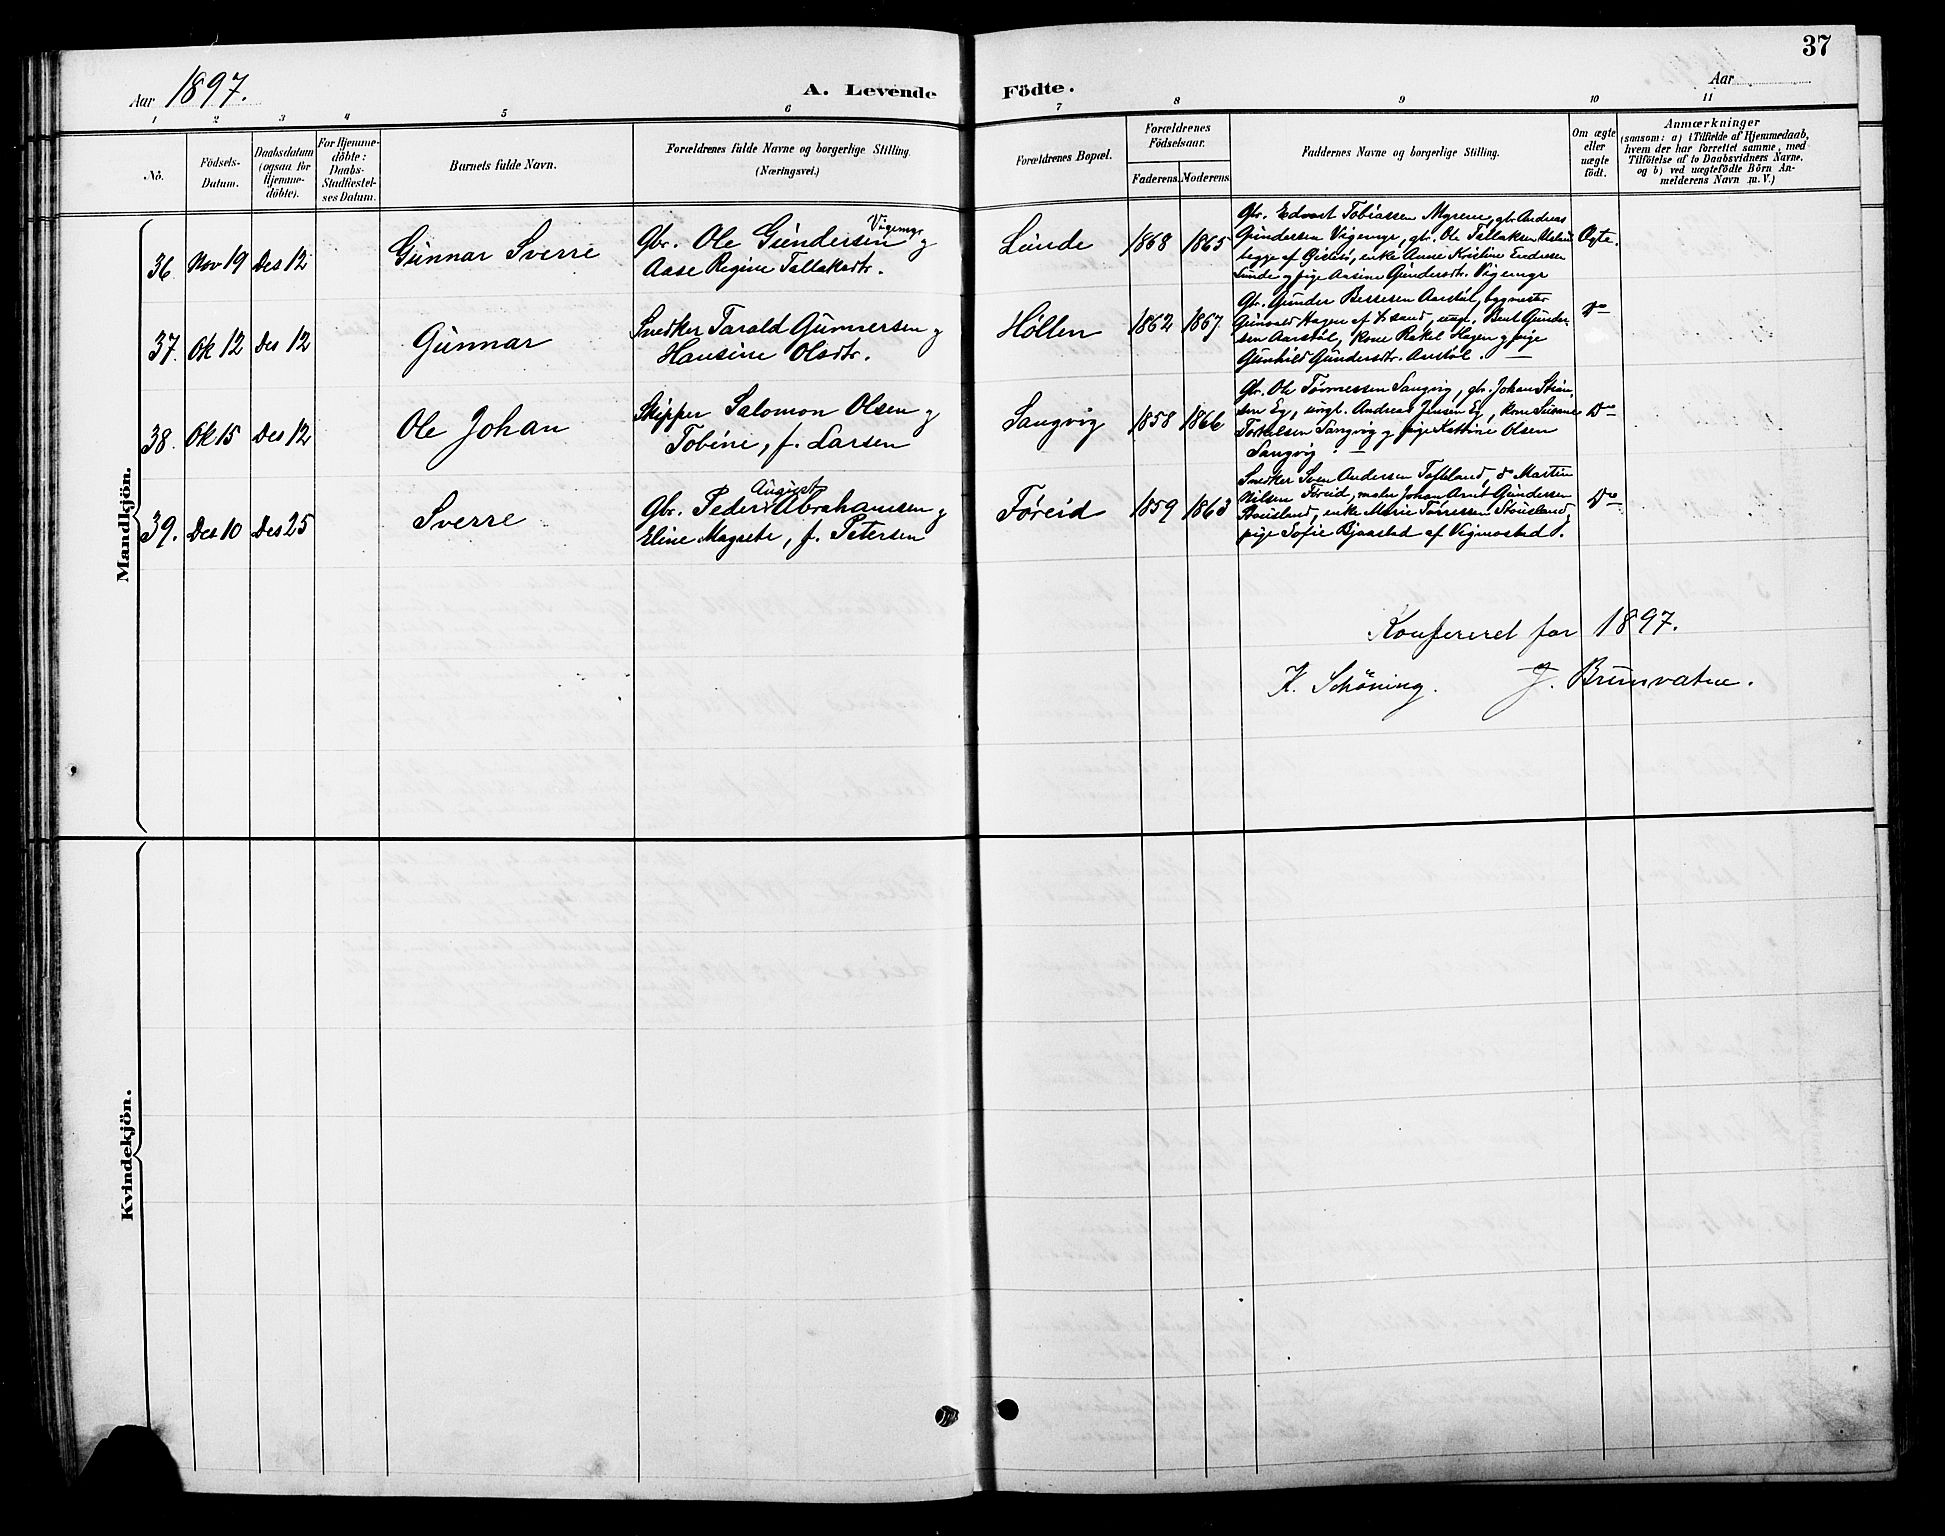 37
Aar 1897.
A. Levende Födte.
Aar
1 2 3 4 5 6 7 8 9 10 11
No.
Födsels-
Datum.
Daabsdatum
(ogsaa for
Hjemme-
döbte).
For Hjemme-
döbte:
Daabs-
Stadfæstel-
ses Datum.
Barnets fulde Navn.
Forældrenes fulde Navne og borgerlige Stilling.
(Næringsvei.)
Forældrenes Bopæl.
Forældrenes
Födselsaar.
Faderens. Moderens.
Faddernes Navne og borgerlige Stilling.
Om ægte
eller
uægte
födt.
Anmærkninger
(saasom: a) i Tilfælde af Hjemmedaab,
hvem der har forrettet samme, med
Tilföielse af to Daabsvidners Navne.
og b) ved uægtefödte Börn An-
melderens Navn m. V.)
Mandkjön.
36 Nov 19 Des 12
Gunnar Sverre
Gbr. Ole Gundersen Vigemyr og
Aase Regine Tallaksdtr.
Lunde 1868 1865
Gbr. Edvart Tobiassen Myrene, gbr. Andreas
Gundersen Vigemyr, gbr. Ole Tallaksen
begge af Øislebø, enke Anne Kristine Endresen
Lunde og pige Aasine Gundersdtr. Vigemyr
Ægte.
37. Ok 12 Des 12
Gunnar
Snedker Tarald Gunnersen og
Hansine Olsdtr.
Høllen 1862 1867
Gbr. Gunder Bessesen Aarstøl, bygmester
Gunvald Hagen af K.sand, ungk. Bent Gunder-
sen Aarstøl, kone Rakel Hagen og pige
Gunhild Gundersdtr. Aarstøl. —
Do
38. Ok 15 Des 12
Ole Johan
Skipper Salomon Olsen og
Tobine, f. Larsen
Langvig 1858 1866
Gbr. Ole Tønnessen Langvig, gbr. Johan
sen Eg, ungk. Andreas Jensen Eg, kone Susanne
Torkelsen Langvig og pige Kathine Olsen
Langvig. —
Do
39. Des 10 Des 25
Sverre
Gbr. Peder August Abrahamsen og
Eline Magrete, f. Petersen
Føreid 1859 1863
Snedker Sven Andersen Tofteland, do Martin
Nilsen Føreid, maler Johan Arnt Gundersen
Stousland, enke Marie Tørressen Stousland,
pige Sofie Bjaastad af Vigmostad.
Do
Konfereret for 1897.
K. Schöning. J. Brunvatne.
Kvindekjön.